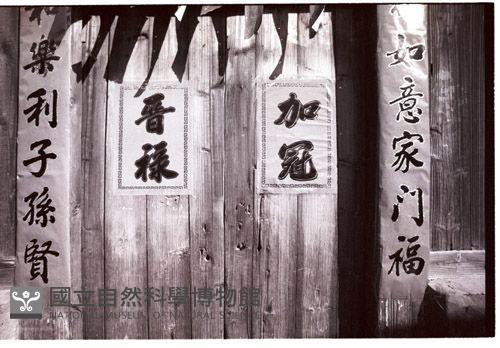 如意家门福
加冠
晋禄
和樂利子孫賢
國立自然科學博物館
NATIONAL MUSEUM OF NATURAL SCIENCE